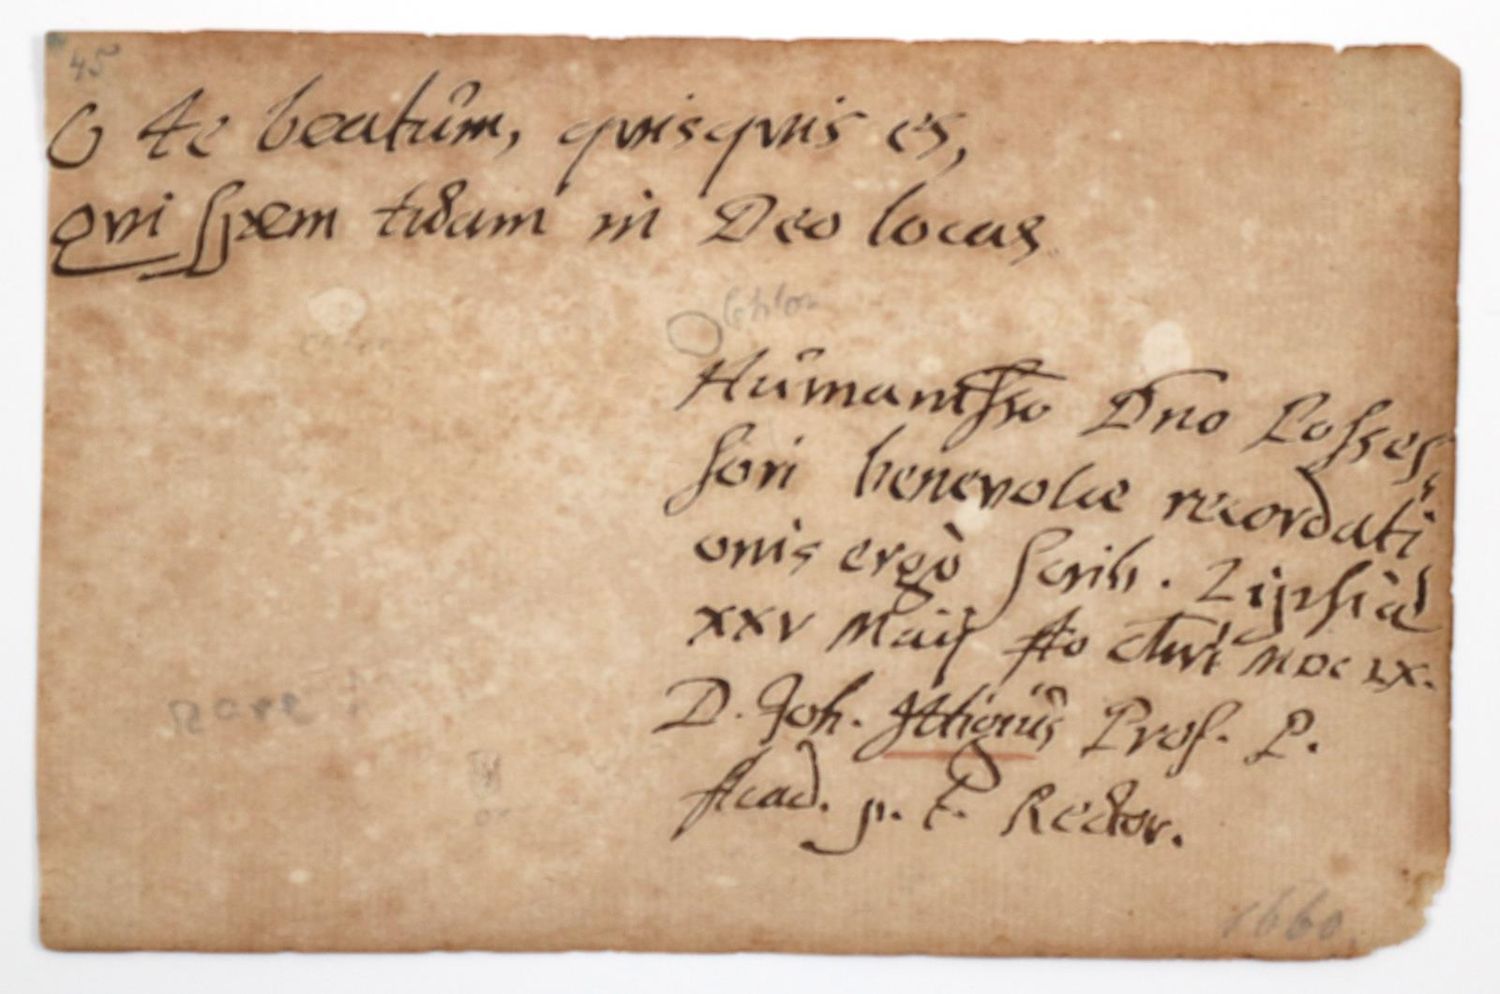 45
O te beatûm, qvisqvis es,
Qvi spem tuam in Deo locas
Hûmanisso Dno Posses-
sori benevolæ recordati
onis ergò scrib. Lipsiæ
XXV Maij Ao Chri MDCLX.
D. Joh. Ittigiûs Prof. P.
Acad. p. t. Rector.
1660